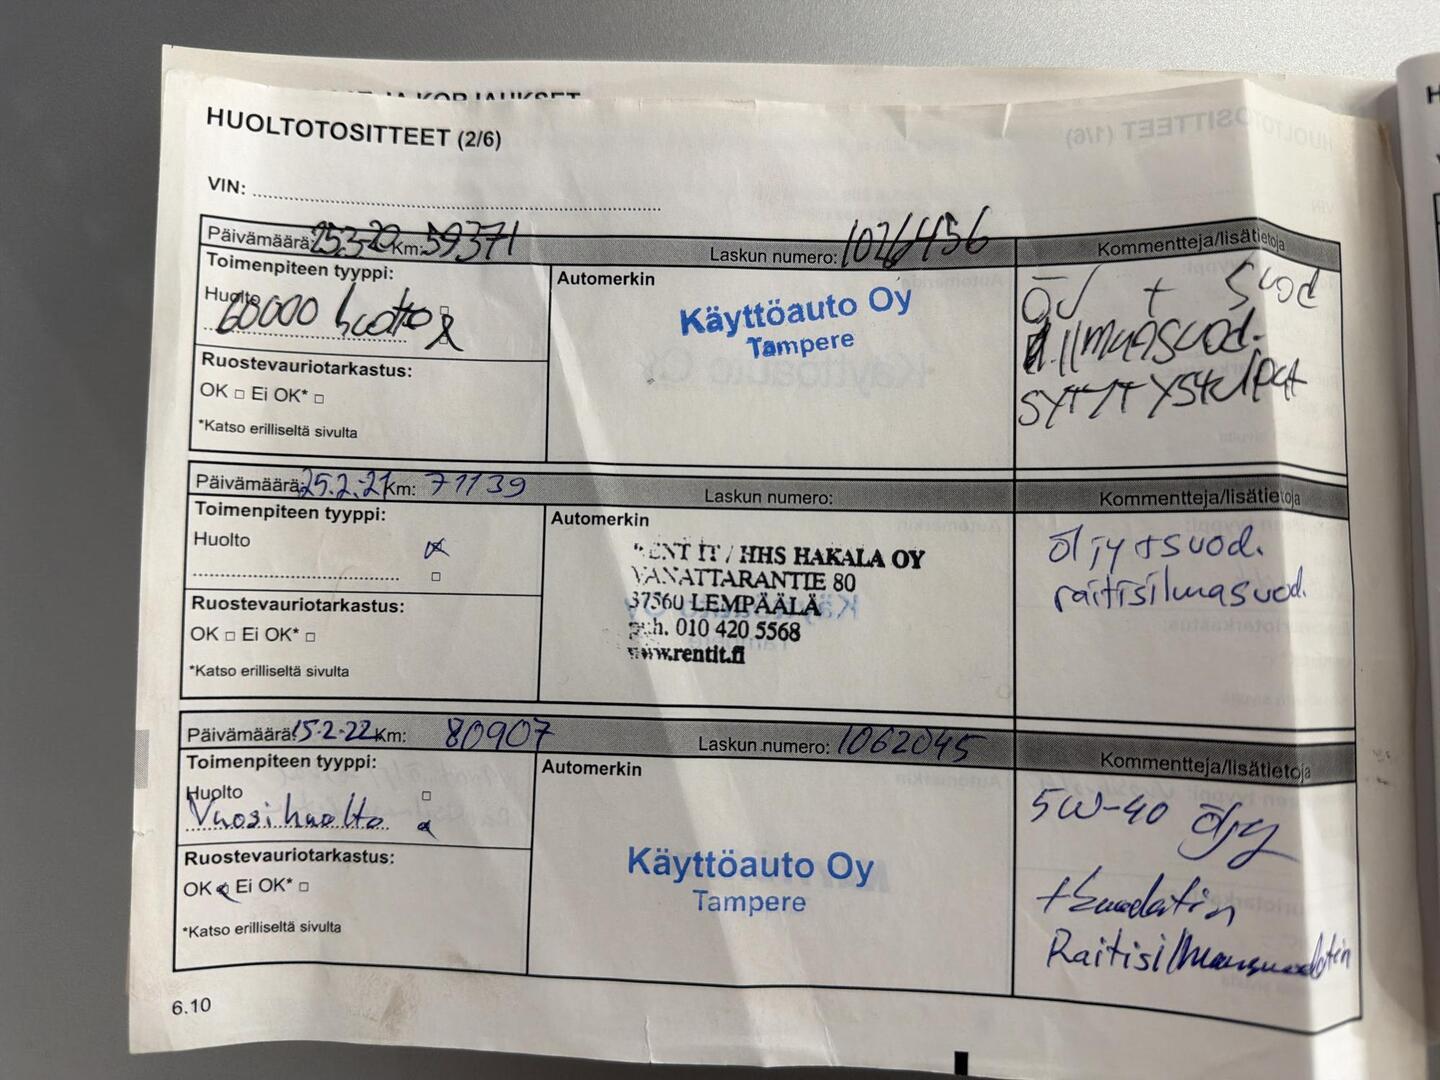 JA KORJAUKSET
HUOLTOTOSITTEET (2/6)
VIN:
Päivämäärä: 25.3-20 Km: 59371 Laskun numero: 1026456 Kommentteja/lisätietoja
Toimenpiteen tyyppi:
Huolto
60000 huolto
Ruostevauriotarkastus:
OK □ Ei OK* □
*Katso erilliseltä sivulta
Automerkin
Käyttöauto Oy
Tampere
ÖJ + Suod
ilmansuod.
SYTYTYStulpat
Päivämäärä: 25.2.21 Km: 71139 Laskun numero: Kommentteja/lisätietoja
Toimenpiteen tyyppi:
Huolto
Ruostevauriotarkastus:
OK □ Ei OK* □
*Katso erilliseltä sivulta
Automerkin
RENT IT / HHS HAKALA OY
VANATTARANTIE 80
37560 LEMPÄÄLÄ
puh. 010 420 5568
www.rentit.fi
öljy+suod.
raitisilmasuod.
Päivämäärä: 15.2.22 Km: 80907 Laskun numero: 1062045 Kommentteja/lisätietoja
Toimenpiteen tyyppi:
Huolto
Vuosihuolto
Ruostevauriotarkastus:
OK Ei OK* □
*Katso erilliseltä sivulta
Automerkin
Käyttöauto Oy
Tampere
5W-40 öljy
+Suodatin
Raitisilmansuodatin
6.10